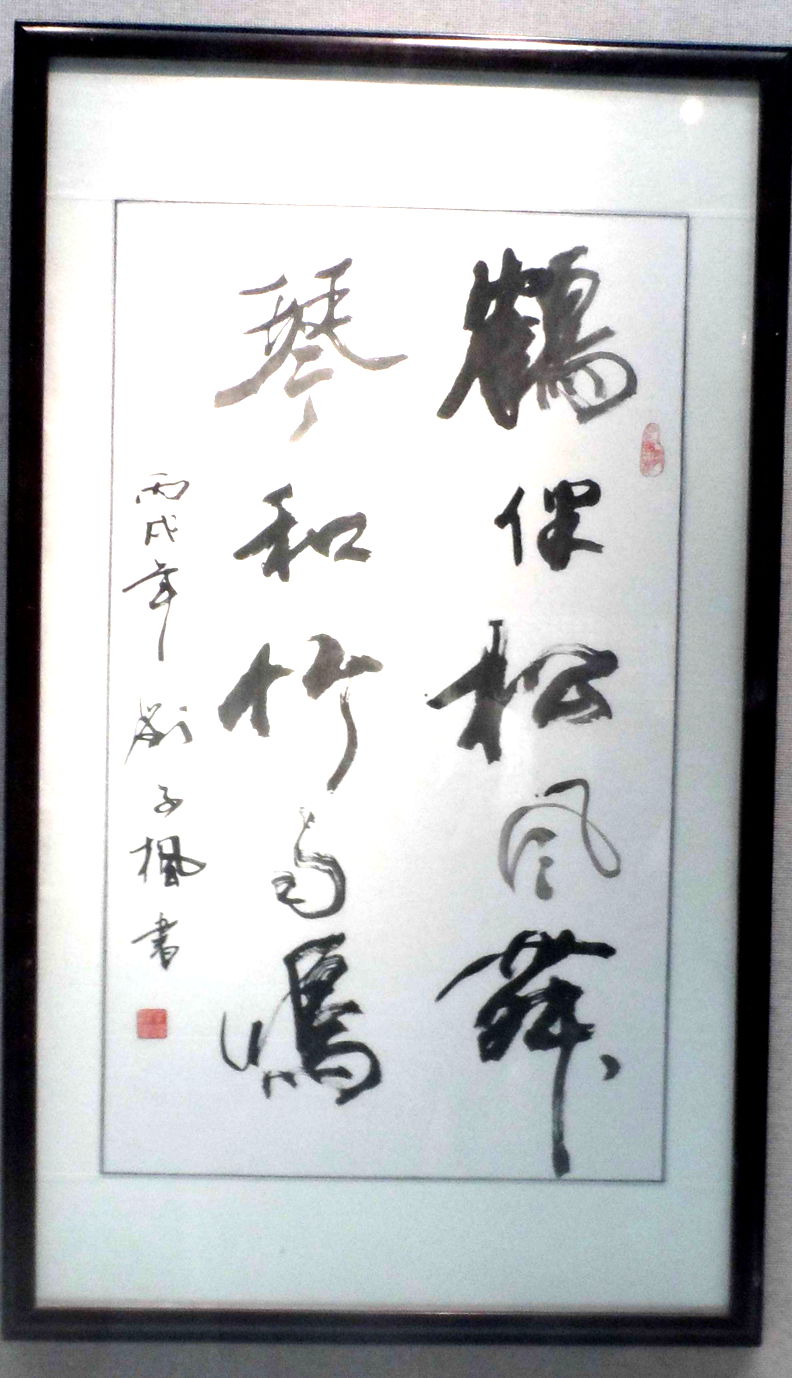 鶴松風舞
琴和竹雨鳴
丙戌年 劉子楓書